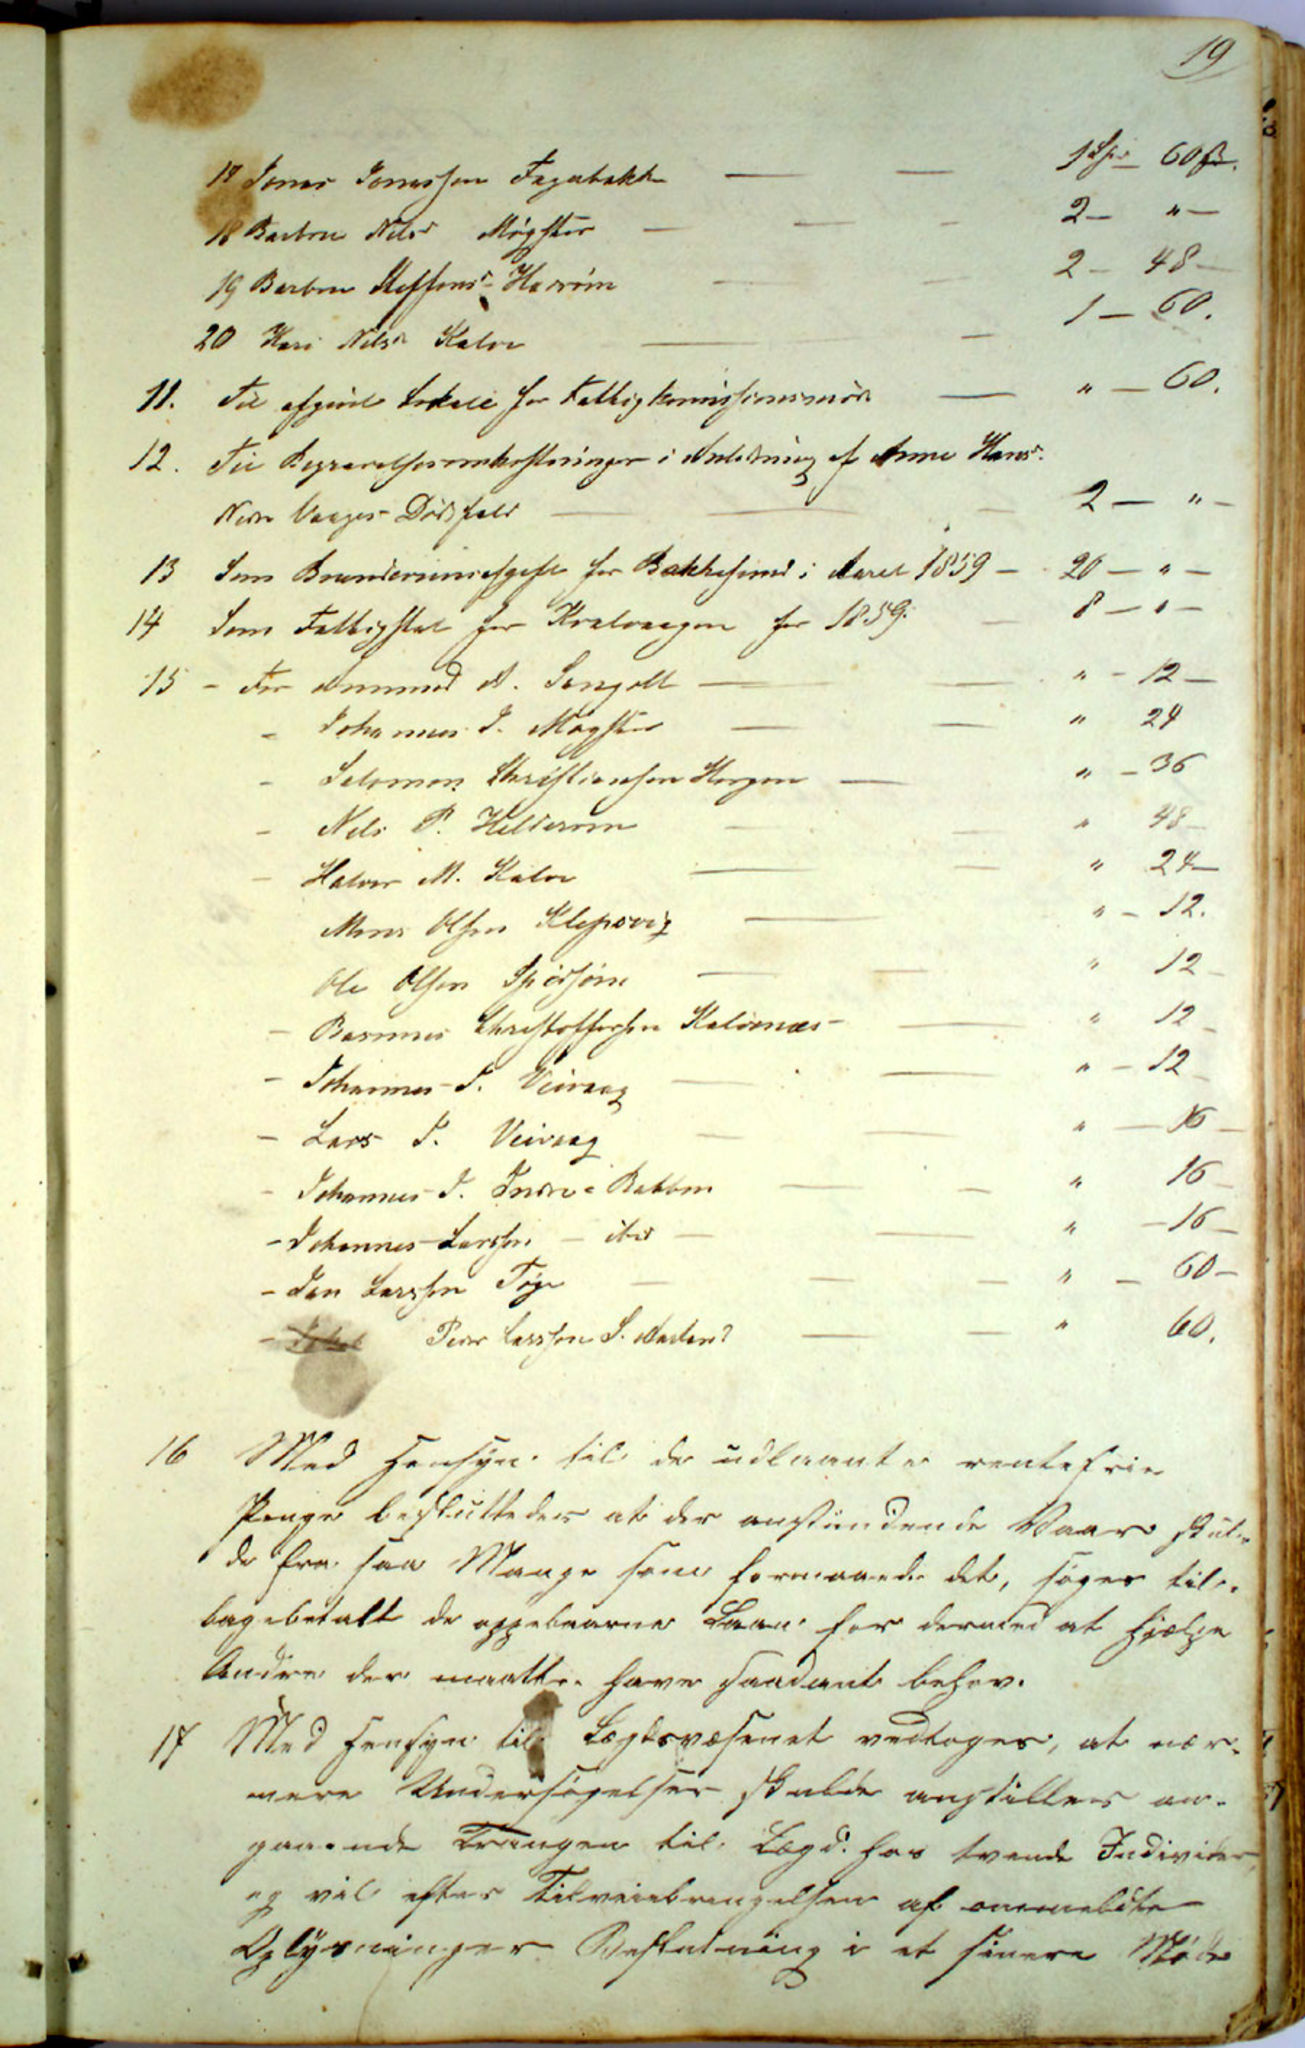 19
17 Jonas Jonassen Fagerbakk — — 1 Spd – 60 ß.
18 Barbru Nilsd Møgster — — — 2 – " –
19 Barbru Steffensd Havrøen — — 2 – 48 –
20 Kari Nilsd Kalve — — 1 – 60.
11. For afgivet Lokale for Fattigkommissionsmøde — " – 60.
12. Til Begravelsesomkostninger i Anledning af Anne Hansd.
Nedre Vaages Dødsfald — — — 2 – " –
13 Som for Bakkesund i Aaret 1859 – 20 – " –
14 Som Fattigskat for Kvalvaagen for 1859. — 8 – " –
15 – For Amund A. — — " – 12 –
– Johannes J. Møgster — — " 24
– Salomon Christiansen — " – 36
– Nils P. — — " 48 –
– Halvor M. Kalve — — " 24 –
Mons Olsen Klepsvig — " – 12.
Ole Olsen — — " 12 –
– Rasmus Christoffersen Kalvenæs – — " 12 –
– Johannes J. Veivaag — — " – 12 –
– Lars J. Veivaag — — " – 16 –
– Johannes J. Indre Bakken — — " 16 –
– Johannes Larssen – ibid — — " – 16 –
– Jan Larssen — — — " – 60 –
– Peder Larssen S. — — " 60.
16 Med Hensyn til de udlaante rentefrie
Penge besluttedes at der anstundende Vaar skul-
de fra saa Mange som formaaede det, søges til-
bagebetalt de oppebaarne Laan for dermed at hjelpe
Andre der maatte have saadant behov.
17 Med Hensyn til Lægdsvæsenet vedtoges, at nær-
mere Undersøgelser skulde anstilles an-
gaaende Trangen til Lægd hos tvende Individer,
og vil efter Tilveiebringelsen af ommeldte
Oplysninger Beslutning i et senere Møde